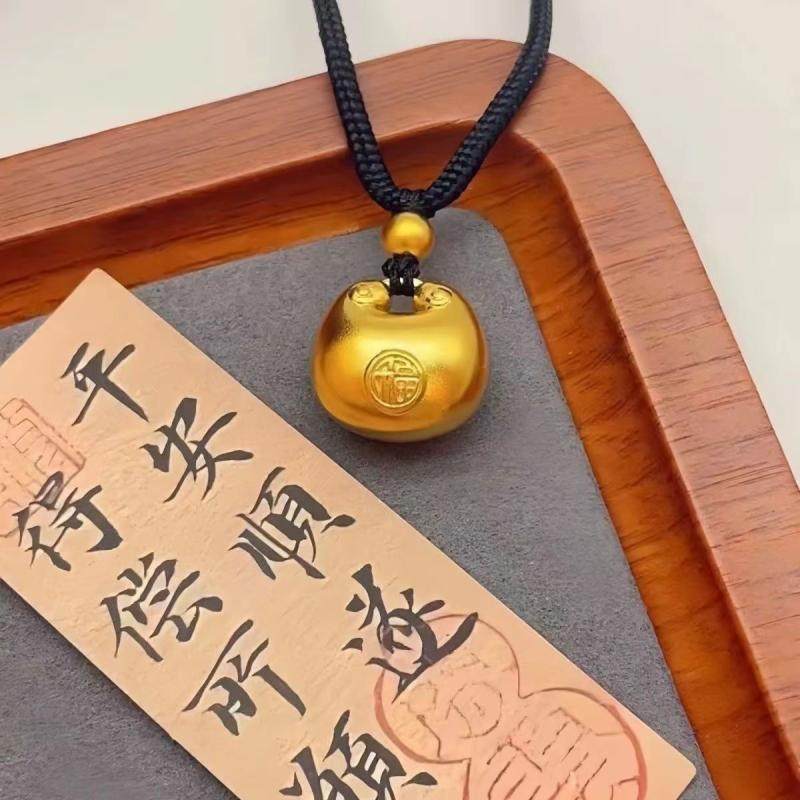 平安順遂
得偿所願
福